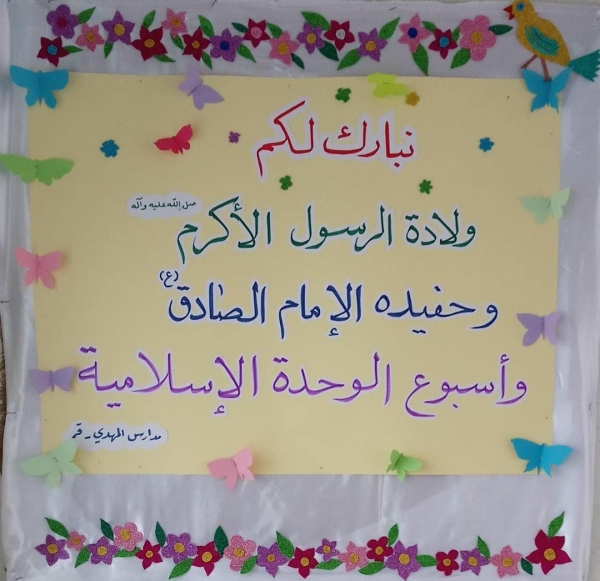 نبارك لكم
ولادة الرسول الأكرم صلى الله عليه وآله
وحفيده الإمام الصادق (ع)
وأسبوع الوحدة الإسلامية
مدارس المهدي - قم